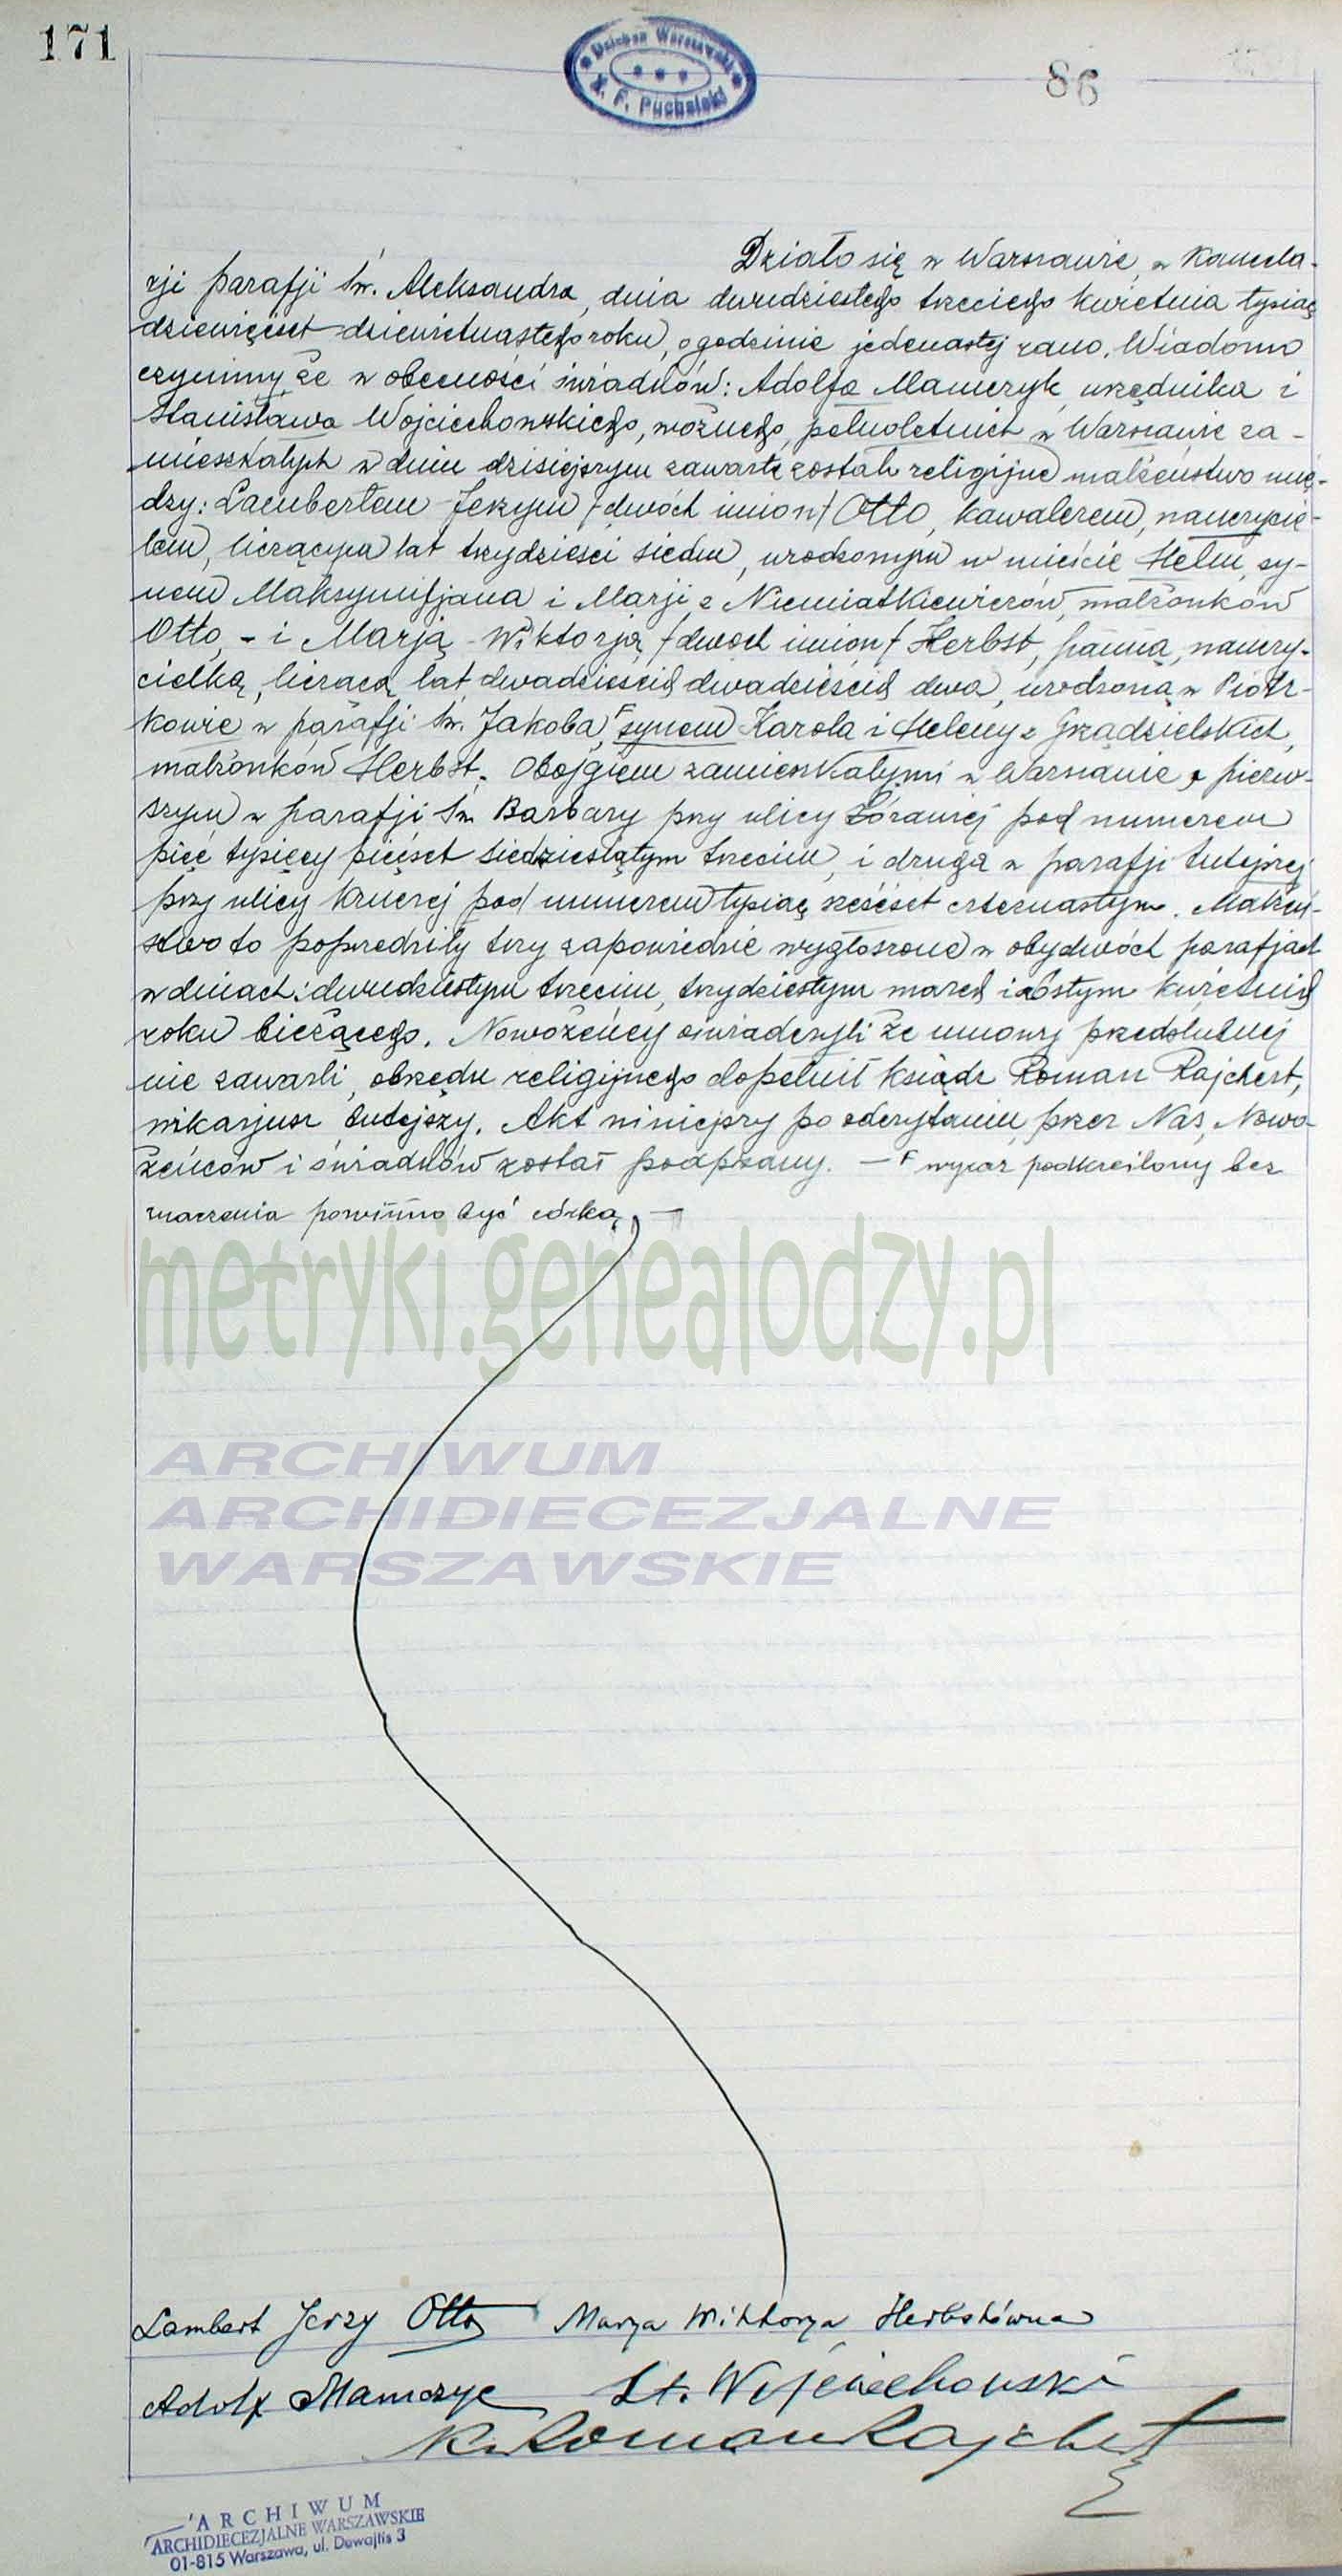 171
Dziekan Warszawski
X. F. Puchalski
86
Działo się w Warszawie, w Kancela-
rji parafji Św. Aleksandra, dnia dwudziestego trzeciego kwietnia tysiąc
dziewięćset dziewiętnastego roku, o godzinie jedenastej rano. Wiadomo
czynimy że w obecności świadków: Adolfa Mamczyk, urzędnika i
Stanisława Wojciechowskiego, woźnego, pełnoletnich w Warszawie za-
mieszkałych w dniu dzisiejszym zawarte zostało religijne małżeństwo mię-
dzy: Lambertem-Jerzym /dwóch imion/ Otto, kawalerem, nauczycie-
lem, liczącym lat trzydzieści siedm, urodzonym w mieście Helm, sy-
nem Maksymiljana i Marji z Niemiatkiewiczów, małżonków
Otto, - i Marją-Wiktorją /dwoch imion/ Herbst, panną, nauczy-
cielką, liczącą lat dwadzieścia dwadzieścia dwa, urodzoną w Piotr-
kowie w parafji Św. Jakoba, synem Karola i Heleny z Grządzielskich,
małżonków Herbst. Obojgiem zamieszkałymi w Warszawie, pierw-
szym w parafji Św. Barbary przy ulicy Żórawiej pod numerem
pięć tysięcy pięćset siedzdziesiątym trzecim, i drugą w parafji tutejszej
przy ulicy Kruczej pod numerem tysiąc sześćset czternastym. Małżeń-
stwo to poprzedziły trzy zapowiedzie wygłoszone w obydwóch parafjach
w dniach: dwudziestym trzecim, trzydziestym marca i szóstym kwietnia
roku bieżącego. Nowożeńcy oświadczyli że umowy przedślubnej
nie zawarli, obrzędu religijnego dopełnił ksiądz Roman Rajchert,
wikarjusz tutejszy. Akt niniejszy po odczytaniu, przez Nas, Nowo-
żeńców i świadków został podpisany. — wyraz podkreślony bez
znaczenia powinno być córką —
metryki.genealodzy.pl
ARCHIWUM
ARCHIDIECEZJALNE
WARSZAWSKIE
Lambert Jerzy Otto Marya Wiktorya Herbstówna
Adolf Mamczyc St. Wojciechowski
Ks Roman Rajchert
ARCHIWUM
ARCHIDIECEZJALNE WARSZAWSKIE
01-815 Warszawa, ul. Dewajtis 3